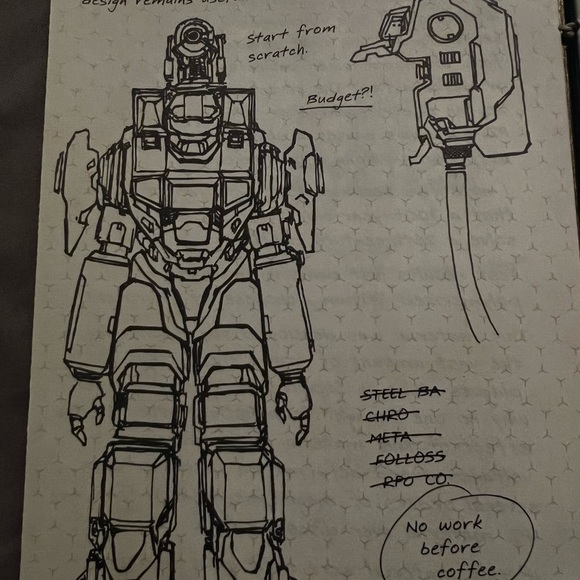 design remains
Start from
scratch.
Budget?!
STEEL BA
CHRO
META
FOLLOSS
RPO CO.
No work
before
coffee.